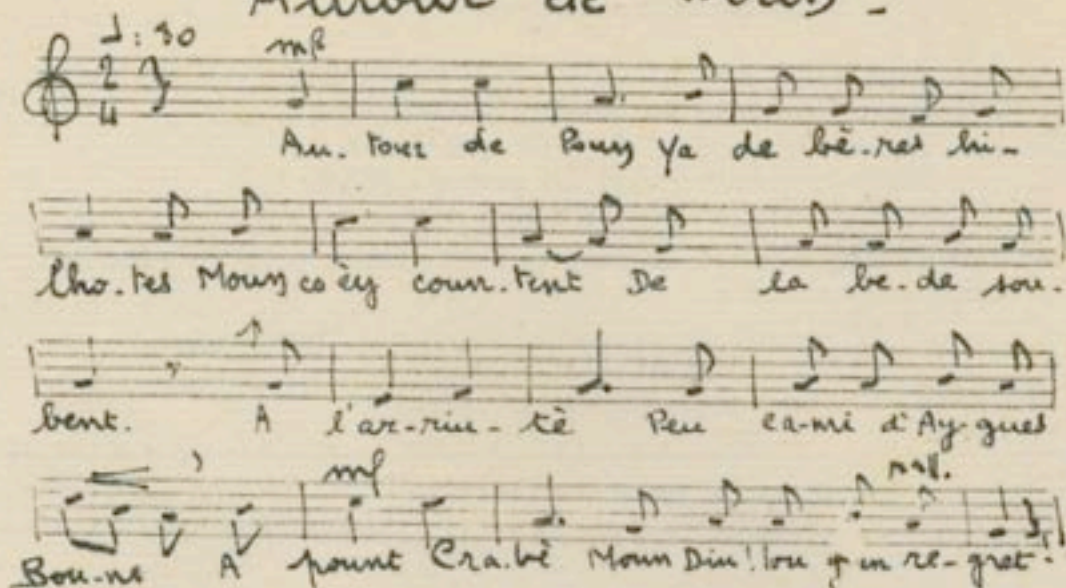 Autour de
♩: 90 mf
2 4
Au. tour de Pouy Ya de bè. res hi-
lho. tes Moun co èy coun. tent De la be. de sou.
bent. A l'ar-riu- tè Peu ca-mi d'Ay-gues
mf rall.
Bou-nes A pount Cra.bè Moun Diu! lou in re-gret.